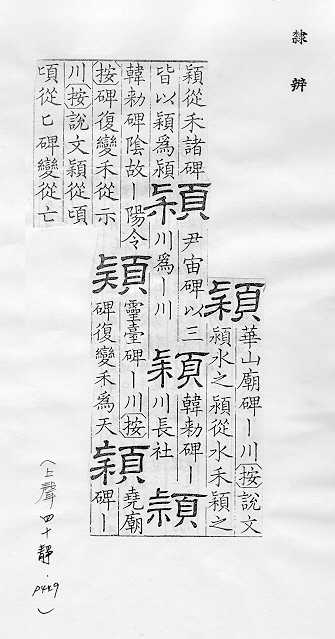 隸辨
穎
華山廟碑｜川按說文
潁水之穎從水禾穎之
穎從禾諸碑
皆以穎爲潁
穎
尹宙碑以三
川爲｜川
穎
韓勑碑｜
川長社
穎
韓勑碑陰故｜陽令
按碑復變禾從示
穎
靈臺碑｜川按
碑復變禾爲天
穎
堯廟
碑｜
川按說文穎從頃
頃從匕碑變從亡
(上聲四十靜．P449)